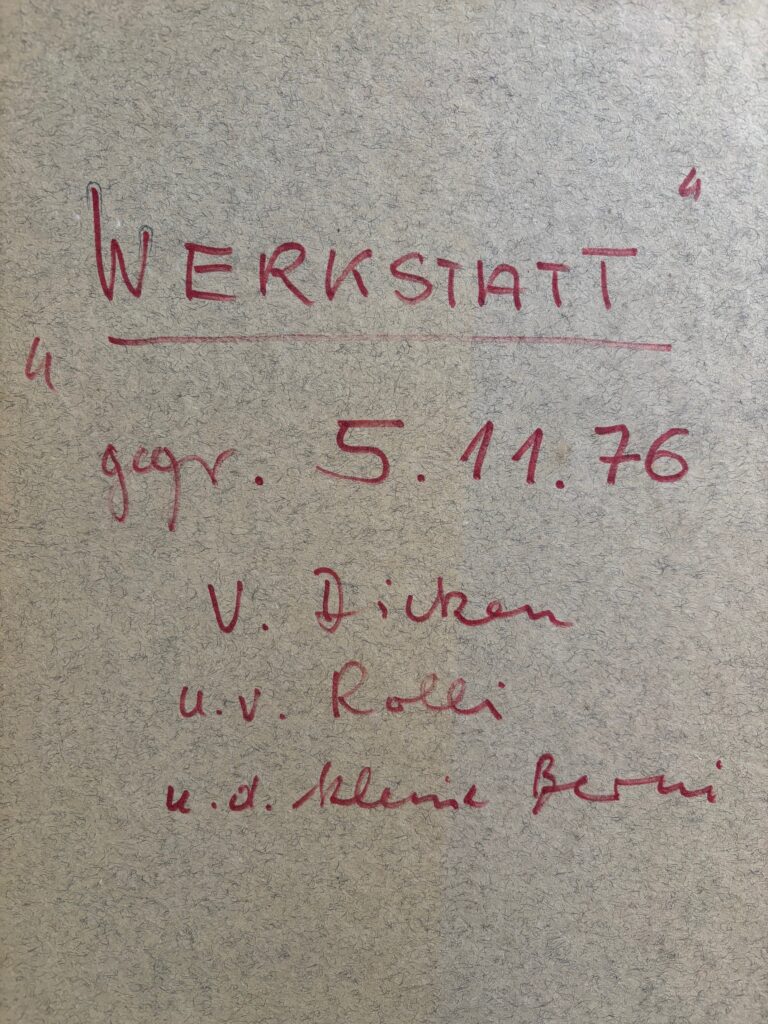 „WERKSTATT“
gegr. 5.11.76
v. Dicken
u.v. Rolli
u.d. kleine Berni